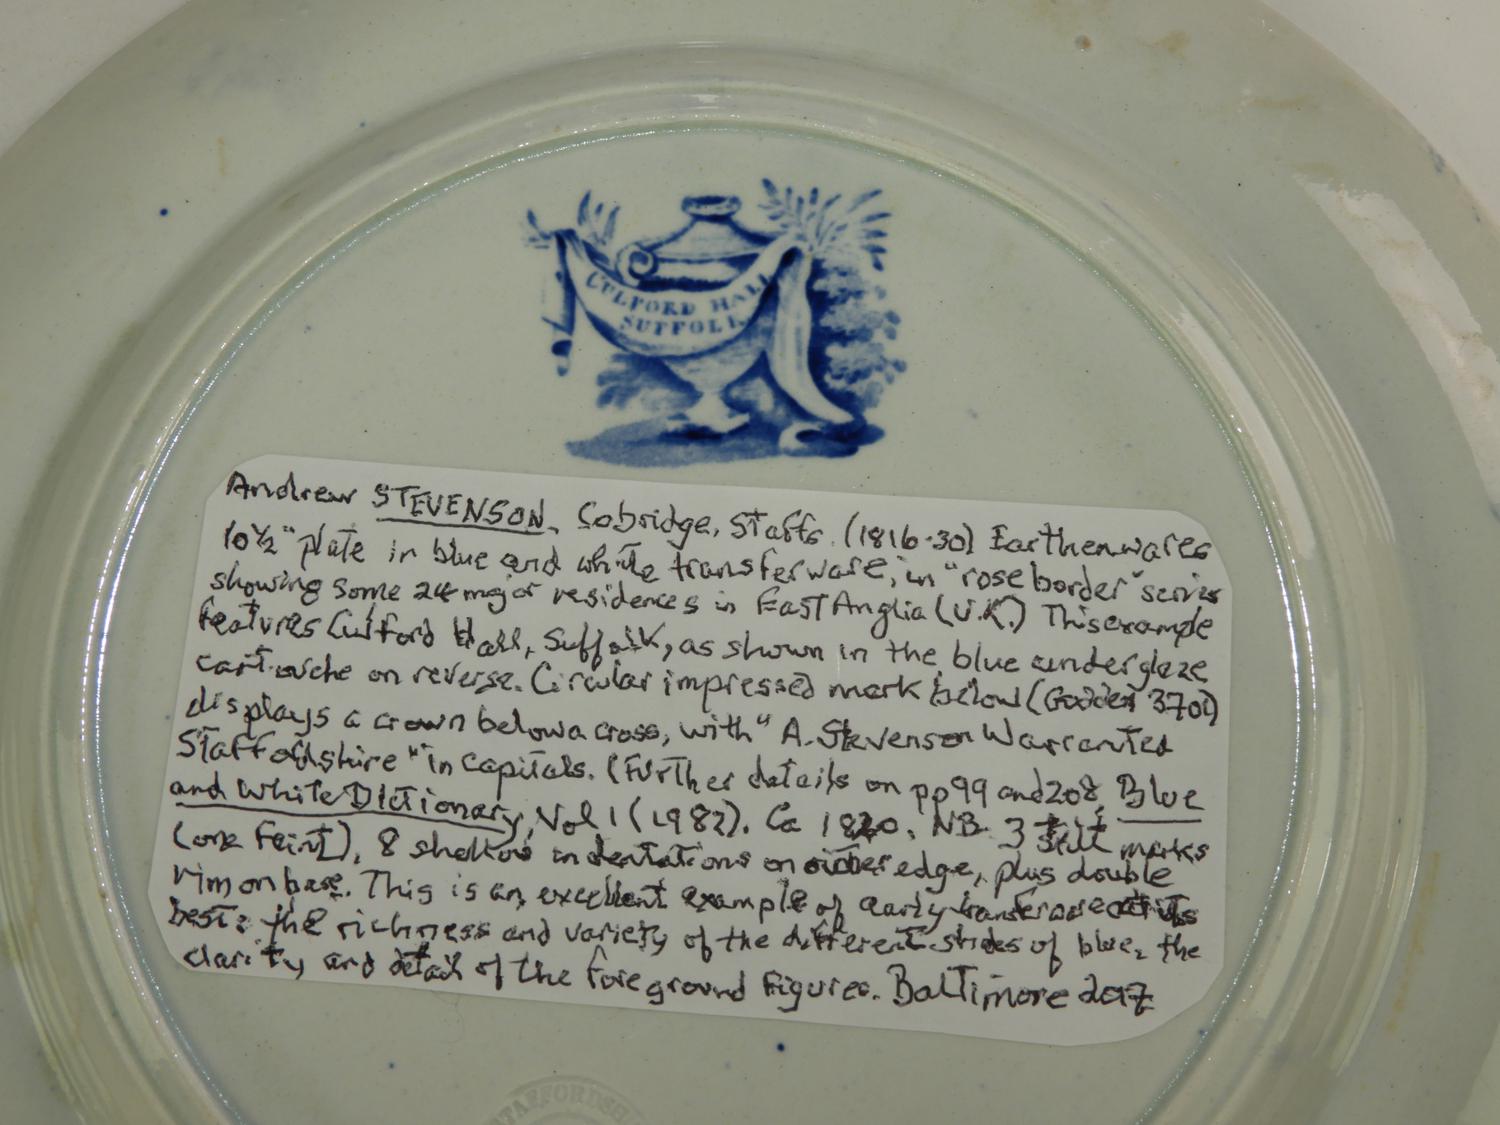 CULFORD HALL
SUFFOLK
Andrew STEVENSON, Cobridge, Staffs. (1816-30) Earthenwares
10½" plate in blue and white transferware, in "rose border" series
showing some 24 major residences in East Anglia (U.K.) This example
features Culford Hall, Suffolk, as shown in the blue underglaze
cartouche on reverse. Circular impressed mark below (Godden 3701)
displays a crown below a cross, with "A. Stevenson Warranted
Staffordshire" in capitals. (Further details on pp 99 and 208, Blue
and White Dictionary, Vol 1 (1982). Ca 1820. NB. 3 stilt marks
(one faint), 8 shallow indentations on outer edge, plus double
rim on base. This is an excellent example of early transferware at its
best: the richness and variety of the different shades of blue, the
clarity and detail of the foreground figures. Baltimore 2017
STAFFORDSHI